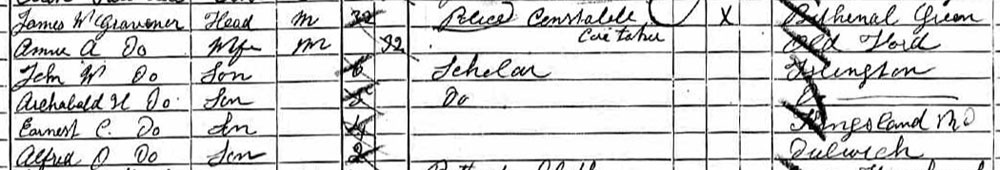 James W Gravener Head M 32 Police Constable X Bethenal Green
Annie A Do Wife M 32 Caretaker Old Ford
John W Do Son 6 Scholar Islington
Archabald H Do Son 5 Do Do
Earnest C. Do Son 4 Kingsland
Alfred O Do Son 2 Dulwich